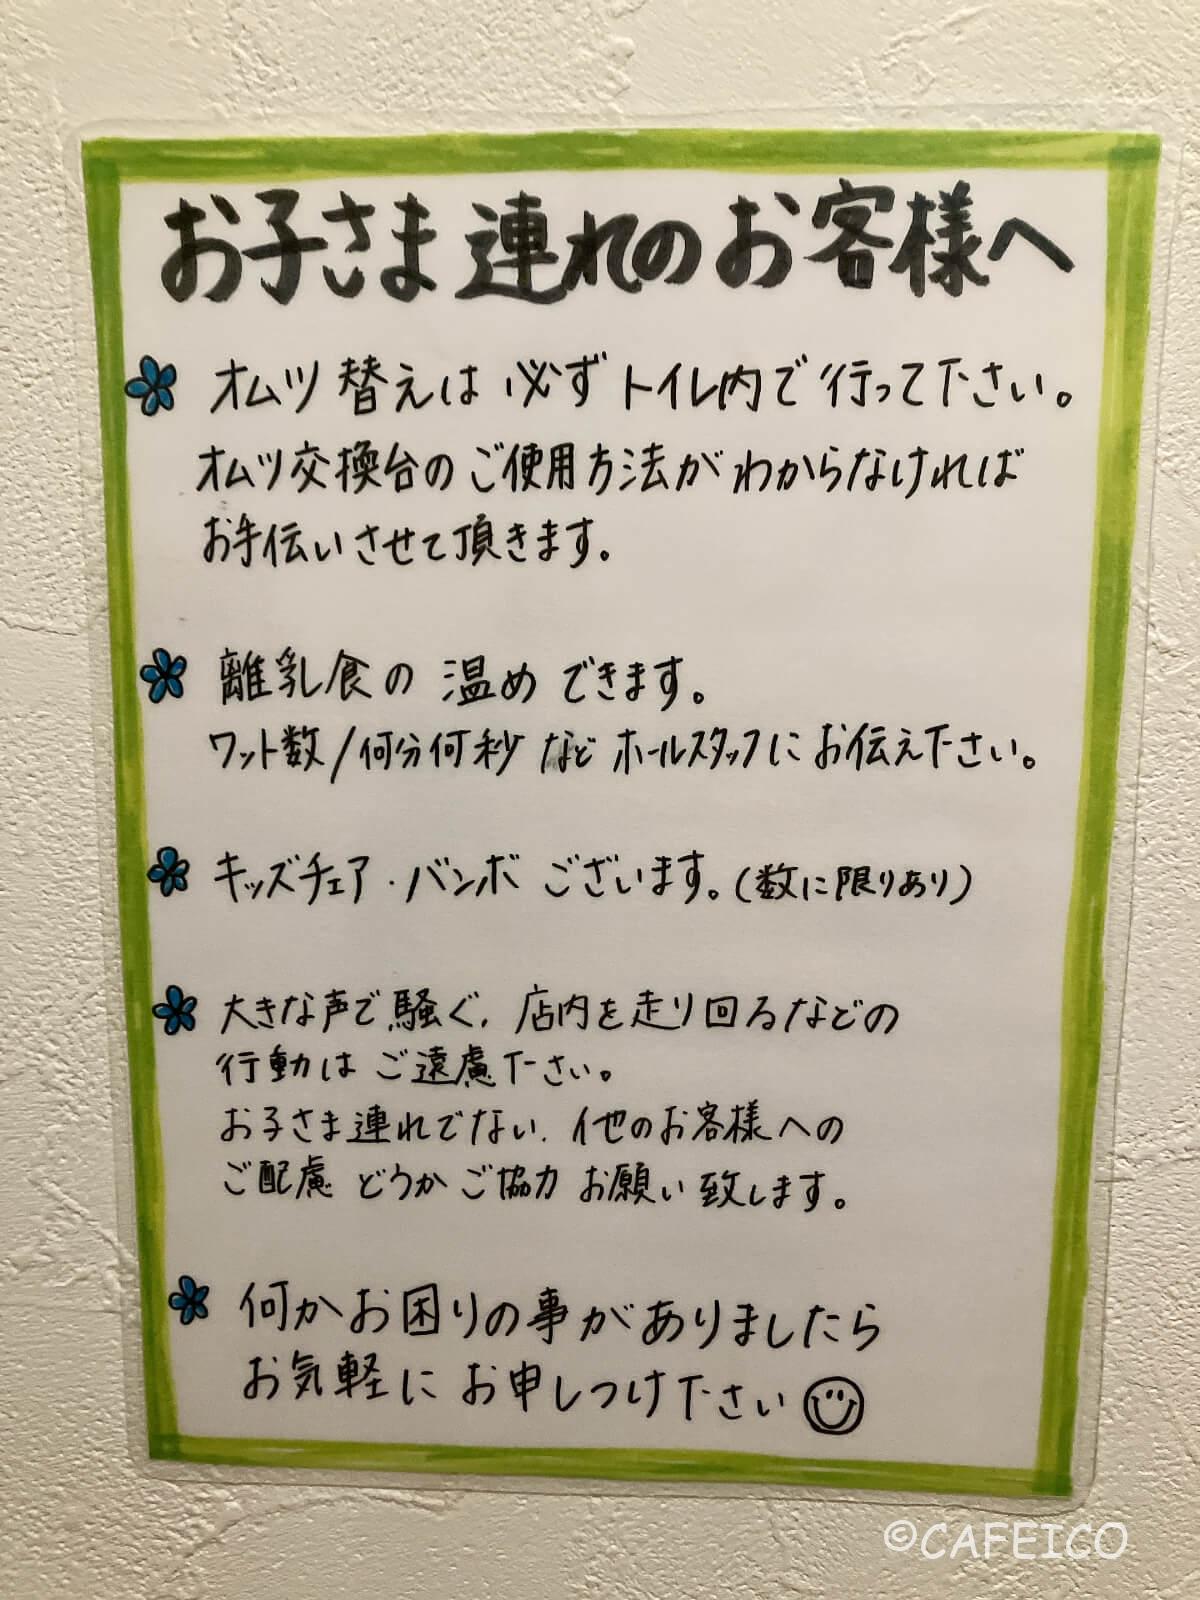 お子さま連れのお客様へ
オムツ替えは必ずトイレ内で行って下さい。
オムツ交換台のご使用方法がわからなければ
お手伝いさせて頂きます。
離乳食の温めできます。
ワット数/何分何秒などホールスタッフにお伝え下さい。
キッズチェア・バンボございます。(数に限りあり)
大きな声で騒ぐ、店内を走り回るなどの
行動はご遠慮下さい。
お子さま連れでない、他のお客様への
ご配慮どうかご協力お願い致します。
何かお困りの事がありましたら
お気軽にお申しつけ下さい
©CAFEICO